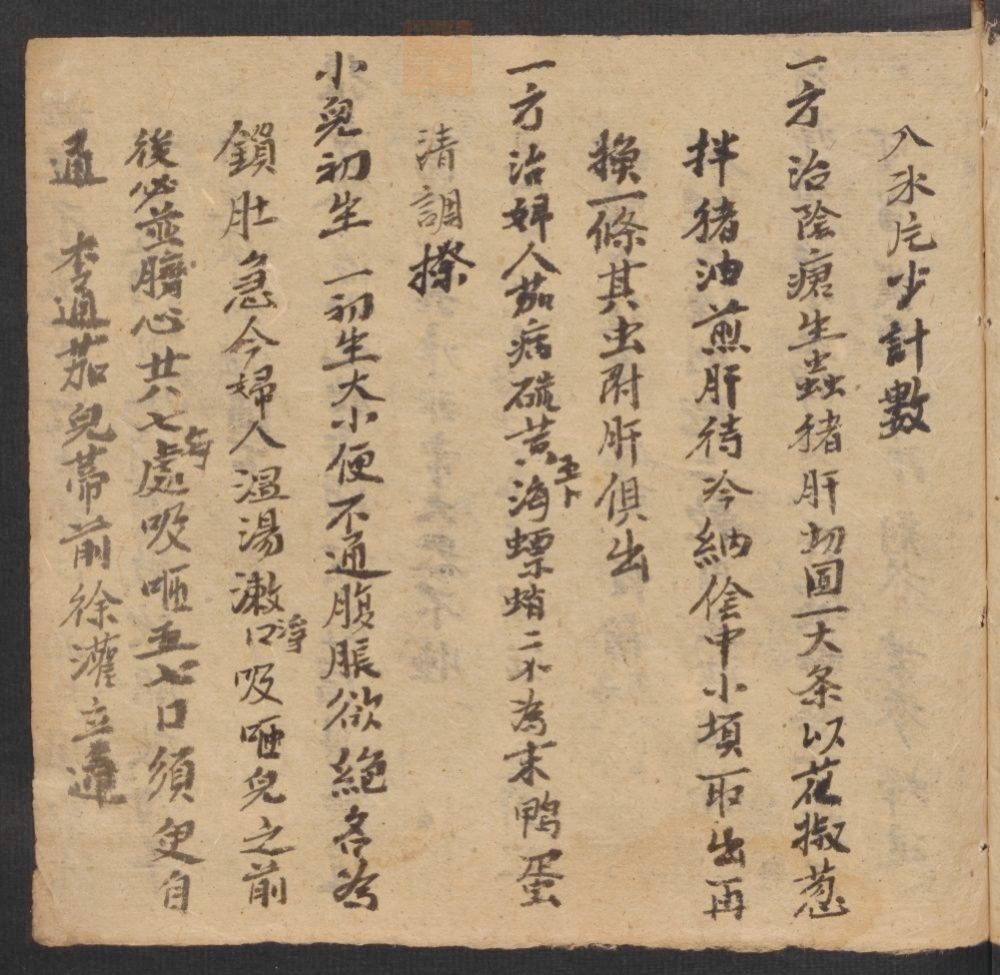 入氷片少計數
一方 治陰瘡生蟲猪肝切圓一大条以花椒葱
拌猪油煎肝待冷納陰中小填取出再
換一條其虫附肝俱出
一方治婦人茄病硫黄五卜海螵蛸二不為末鴨蛋
清調搽
小兒初生 一初生大小便不通腹脹欲絶名為
鎖肚急今婦人温湯漱口浄吸咂兒之前
後必並臍心共七處每吸咂五七口須臾自
通 不通茄兒蒂前徐灌立通